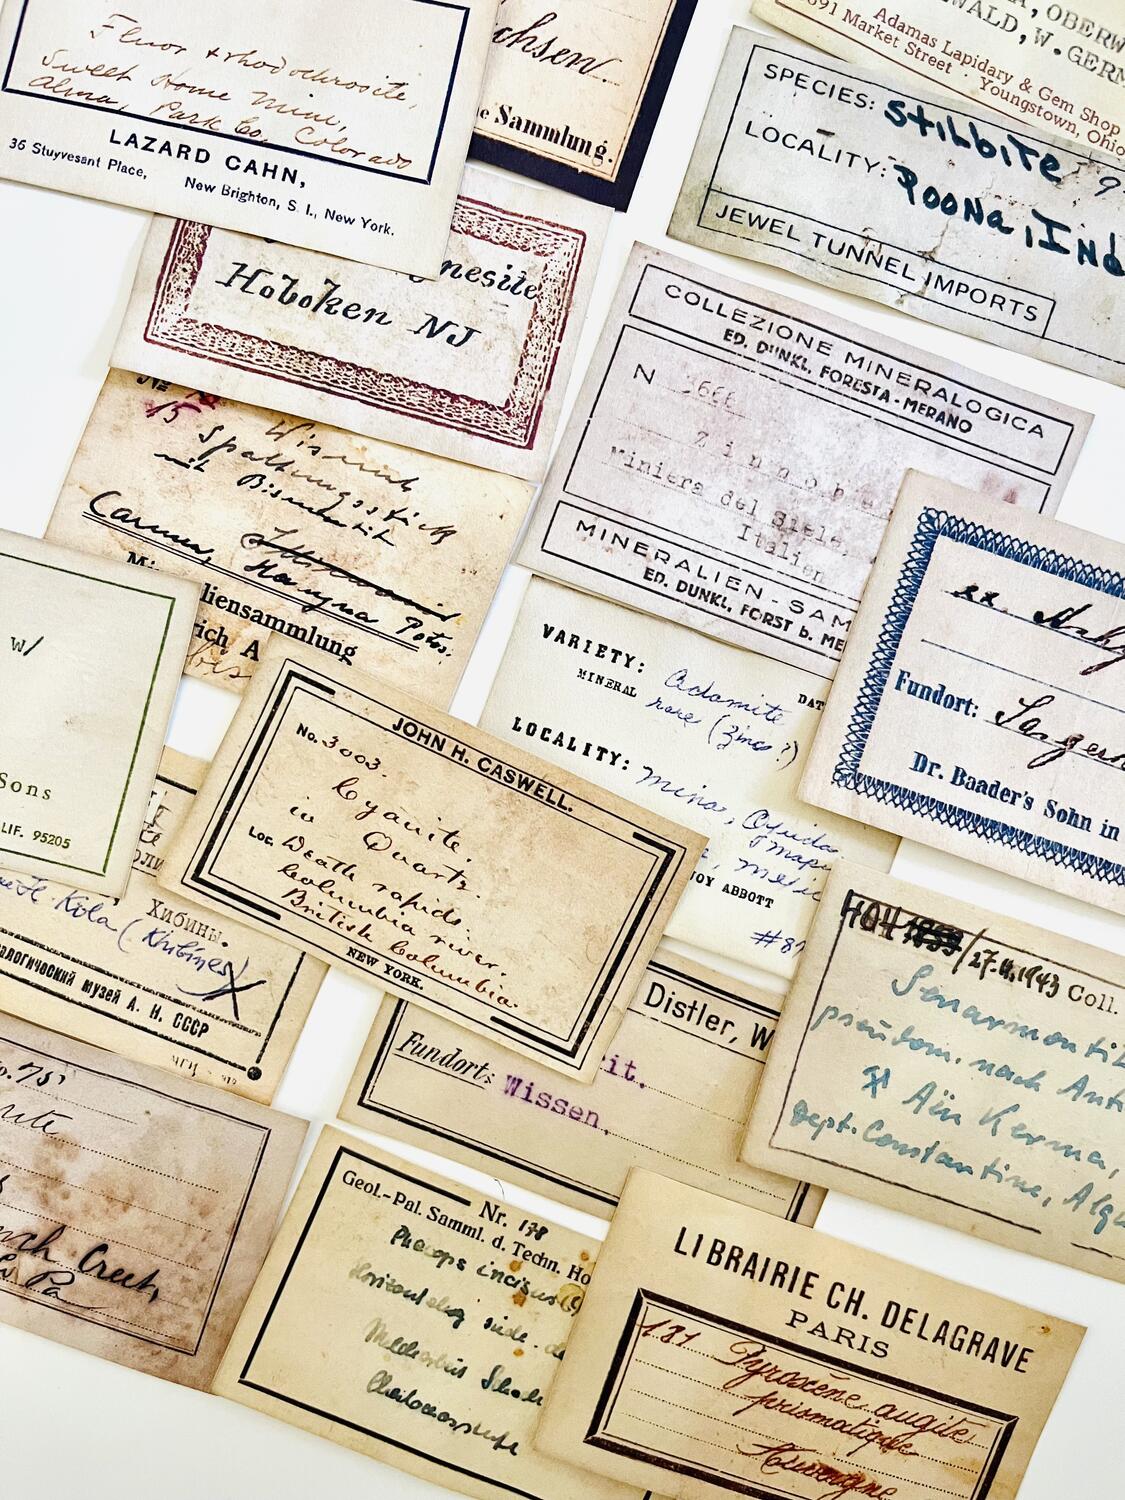 Fluor & rhodochrosite,
Sweet Home Mine,
Alma, Park Co. Colorado
LAZARD CAHN,
36 Stuyvesant Place, New Brighton, S. I., New York.
chsen.
Sammlung.
, OBERW
WALD, W. GERM
Adamas Lapidary & Gem Shop
691 Market Street · Youngstown, Ohio
SPECIES: Stilbite
LOCALITY: Poona, Ind
JEWEL TUNNEL IMPORTS
nesite
Hoboken NJ
COLLEZIONE MINERALOGICA
ED. DUNKL, FORESTA - MERANO
N 366E
Zinnobe
Miniera del Siele,
Italien
MINERALIEN - SAM
ED. DUNKL, FORST b. ME
No
15 Wismuth
Spaltungsstück
mit Bismutit
Carmen,
liensammlung
rich A
w/
Sons
LIF. 95205
VARIETY: Adamite
MINERAL rare (zinc?)
DAT
LOCALITY: Mina, Ojuela
Mapi
JOY ABBOTT
#87
xx
Fundort:
Dr. Baader's Sohn in
JOHN H. CASWELL.
No. 3003.
Cyanite.
in Quartz.
Loc. Death rapids.
Columbia river.
British Columbia.
NEW YORK.
Kola (Khibines)
Хибины.
алогический музей А. Н. СССР
Distler, W
it.
Fundort: Wissen.
1853/27.4.1943 Coll.
Senarmontit
pseudom. nach Anti
Aïn Kerma,
Dept. Constantine, Alge
No. 75
rite
nch Creek,
Pa
Geol.-Pal. Samml. d. Techn. Ho
Nr. 178
LIBRAIRIE CH. DELAGRAVE
PARIS
181 Pyroxène augite
prismatique
Auvergne